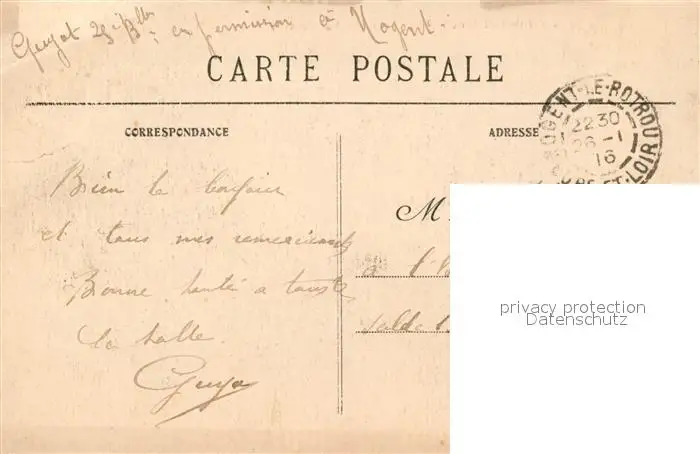 Guyot 29e Blln en permission à Nogent.
CARTE POSTALE
CORRESPONDANCE
ADRESSE
NOGENT-LE-ROTROU
22 30
26 -1
16
EURE-ET-LOIR
M
Bien le bonjour
et tous mes remerciements
Bonne santé à toute
la salle.
Guyo
à l'H
salle 1
privacy protection
Datenschutz